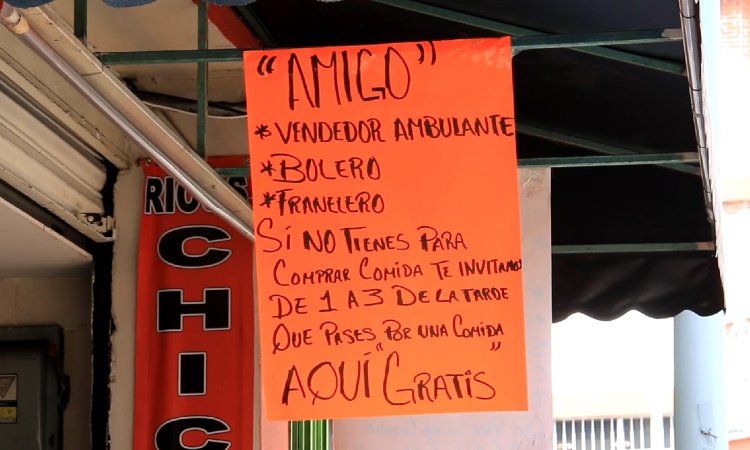 "AMIGO"
*VENDEDOR AMBULANTE
*BOLERO
*FRANELERO
SÍ NO TIENES PARA
COMPRAR COMIDA TE INVITAMOS
DE 1 A 3 DE LA TARDE
QUE PASES POR UNA COMIDA
AQUÍ "GRATIS"
CHIC